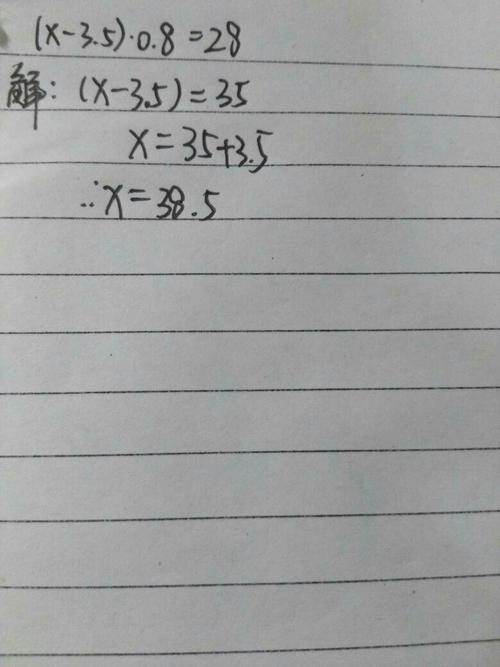 (x-3.5)·0.8=28
解: (x-3.5)=35
x=35+3.5
∴x=38.5